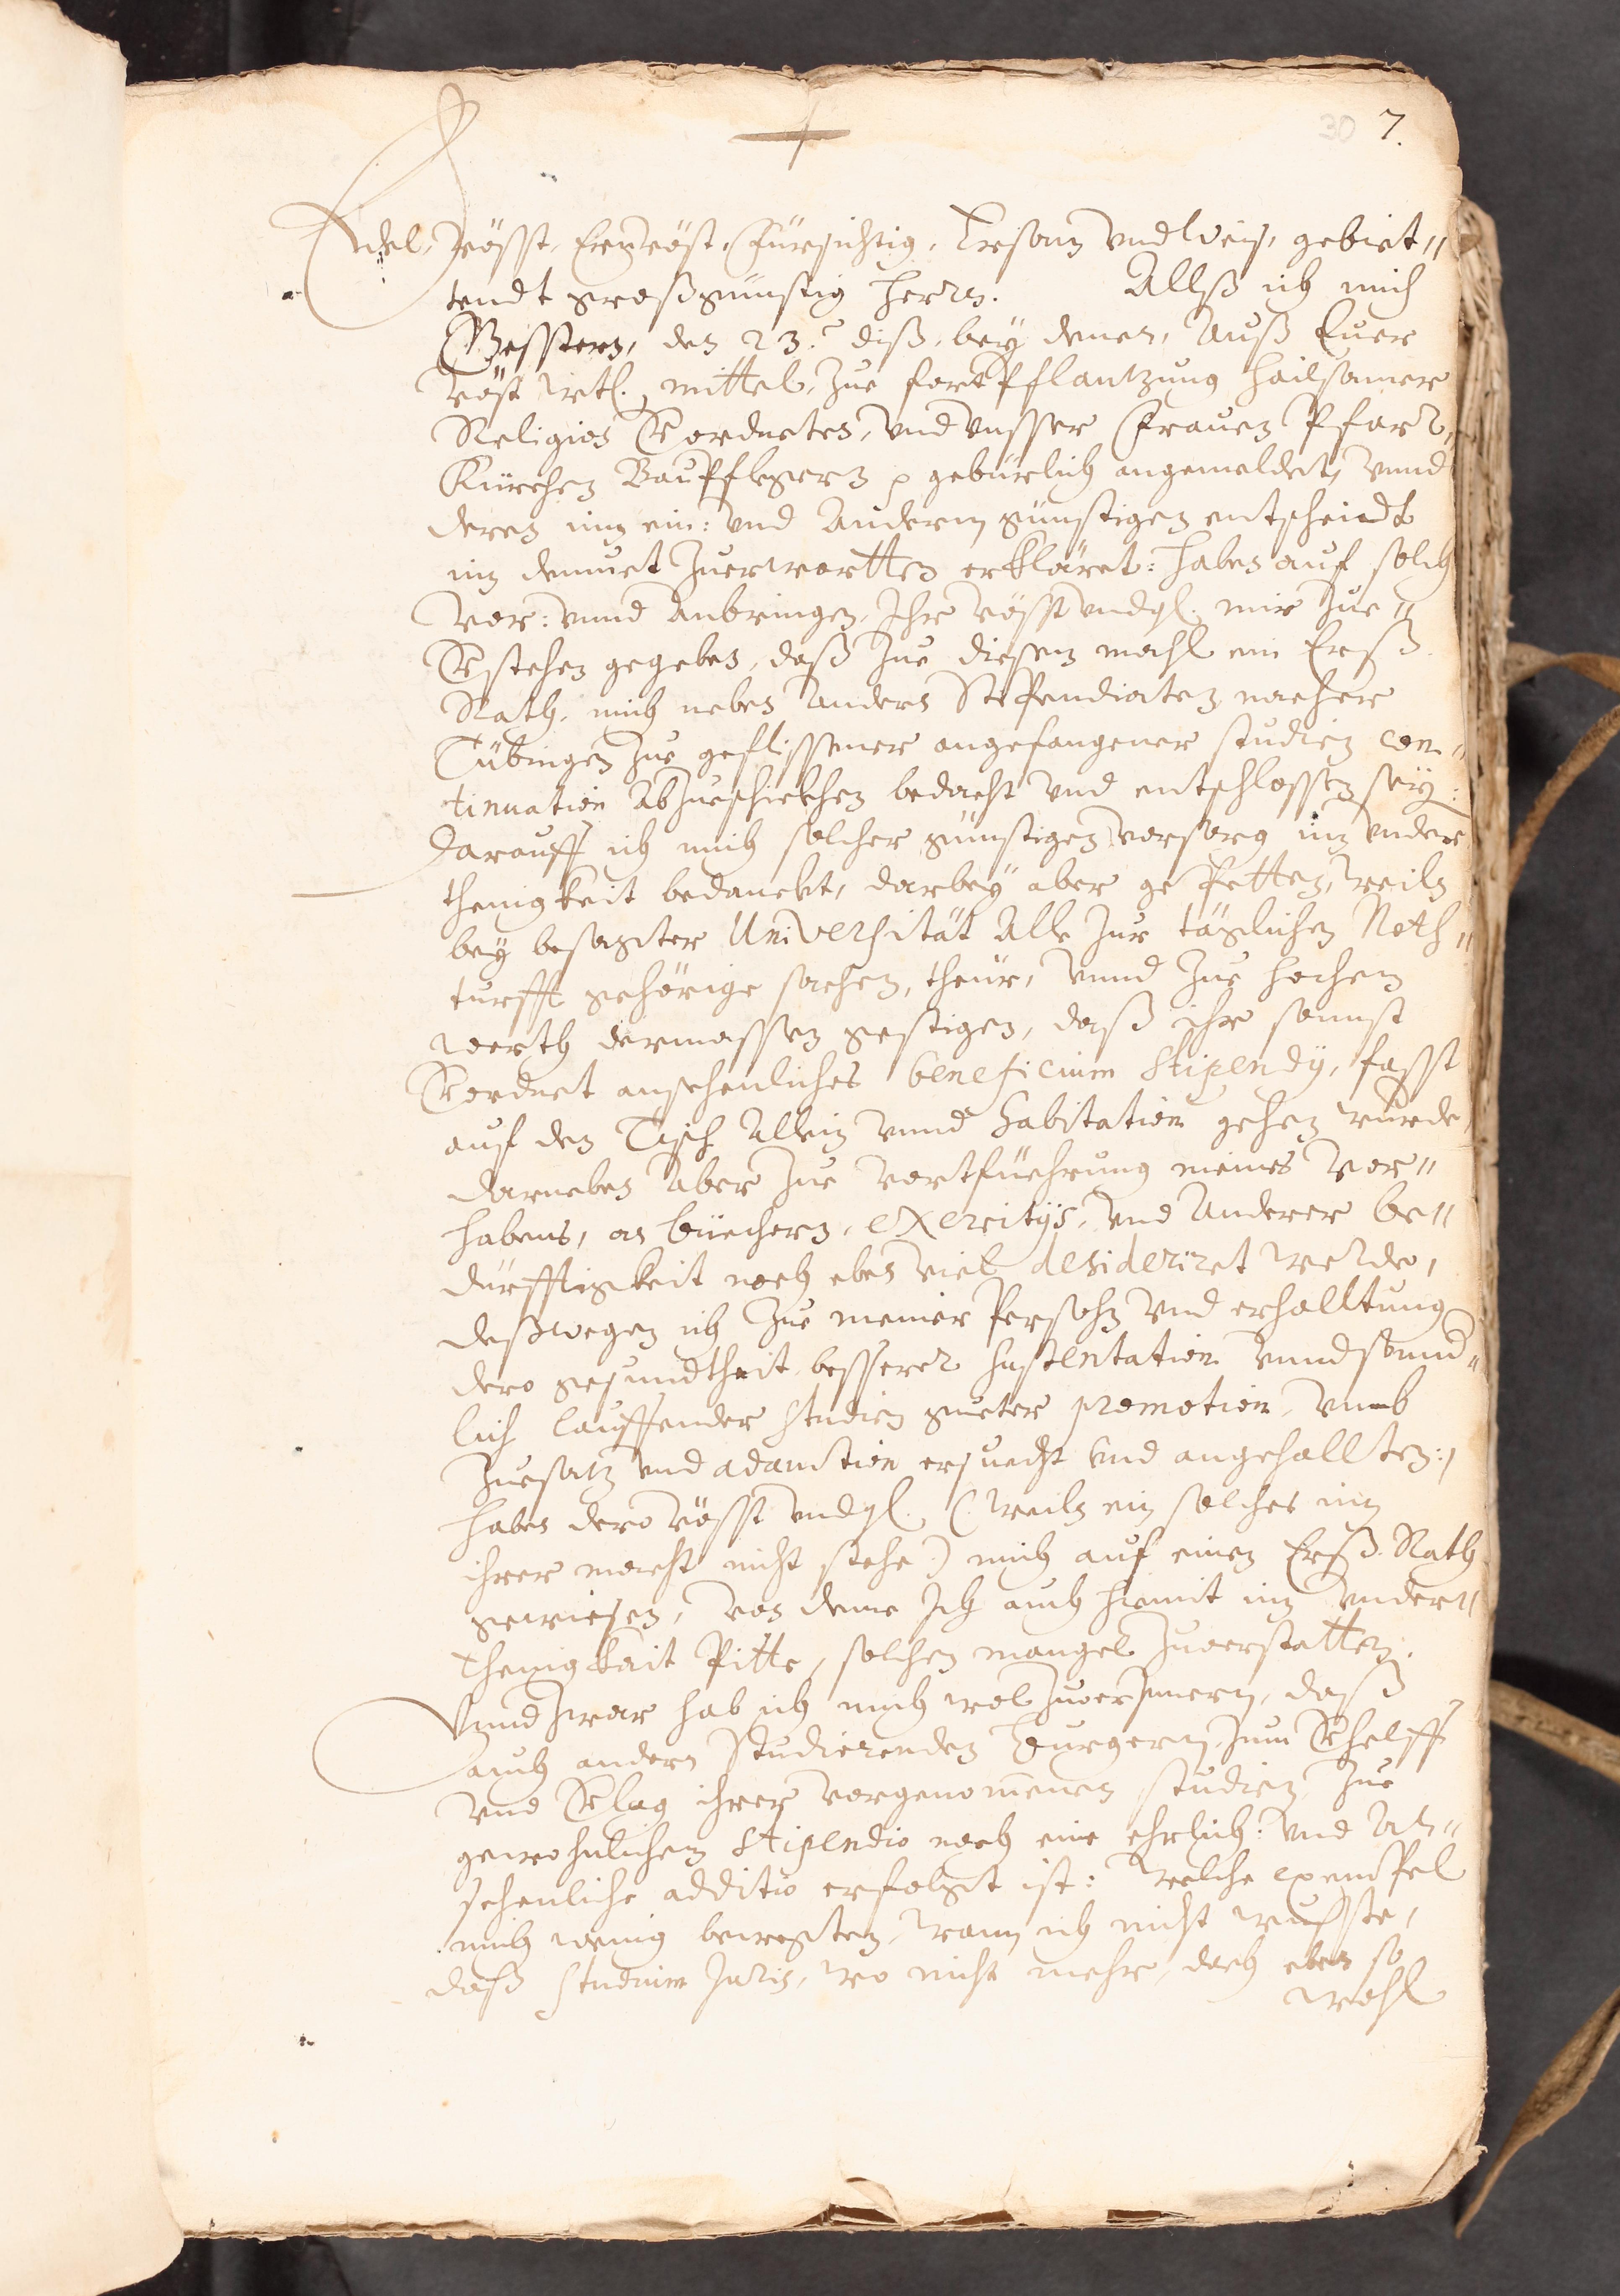 30 7.
Edel, Vösst, Ernvöst, Fürsichtig, Ersam vnd Weis, gebiet"
tendt großgünstig Herren. Allß ich mich
Gesstern, den 23.ᵗ diß, bey denen, Auß Euer
Vöst Hrl. mittel, zue fortpflantzung hailsamer
Religion Verordneten, vnd vnsser Frauen Pfarr,
Kürchen Baupflegern p gebürlich angemeldet, vnnd
deren im ein: vnd Anderm günstigen entscheidt
in demuet zuerwartten erkläret: haben auf solch
Vor: vnnd Anbringen, Ihr Vösst vndgl. mir zue"
Verstehen gegeben, daß zue diesem mahl ein Ers:
Rath, mich neben Andern Stipendiaten, nacher
Tübingen zue geflissener angefangener studien con"
tinuation Abzueschickhen bedacht vnd entschlossen sey:
Darauff ich mich solcher günstigen vorsorg in vnder
thenigkeit bedanckt, darbey aber gepetten, weiln
bey besagter Universität Alle zur täglichen Noth"
turfft gehörige sachen, theur, vnnd zue hochem
werth dermassen gestigen, daß ihr sonnst
Verordnet ansehenliches beneficium Stipendij, fasst
auf den Tisch Allein vnnd habitation gehen würde,
darneben Aber zue Vortfüehrung meines Vor"
habens, an büechern, exercitijs, vnd Anderer be"
dürfftigkeit noch eben viel desideriret werde,
deßwegen ich zue meiner Persohn vnd erhalltung
dero gesundtheit, besserer sustentation vnnd sonnd"
lich lauffender studien gueter promotion, vmb
zuesatz vnd adauction ersuecht vnd angehallten:
haben dero Vösst vndgl. (: weiln ein solches in
ihrer macht nicht stehe:) mich auf einen Ers: Rath
gewiesen, von deme Ich auch hiemit in vnder"
thenigkait Pitte, solchen mangel zuerstatten:
Vnnd zwar hab ich mich wol zuerinnern, daß
auch andern Studierenden burgern, zum Behelff
vnd Verlag ihrer vorgenommenen studien, zue
gewohnlichem Stipendio noch eine ehrlich: vnd An"
sehenliche additio erfolgt ist: Welche exempel
mich wenig bewegten, wann ich nicht wusste,
daß studium Juris, wo nicht mehr, doch eben so
wohl